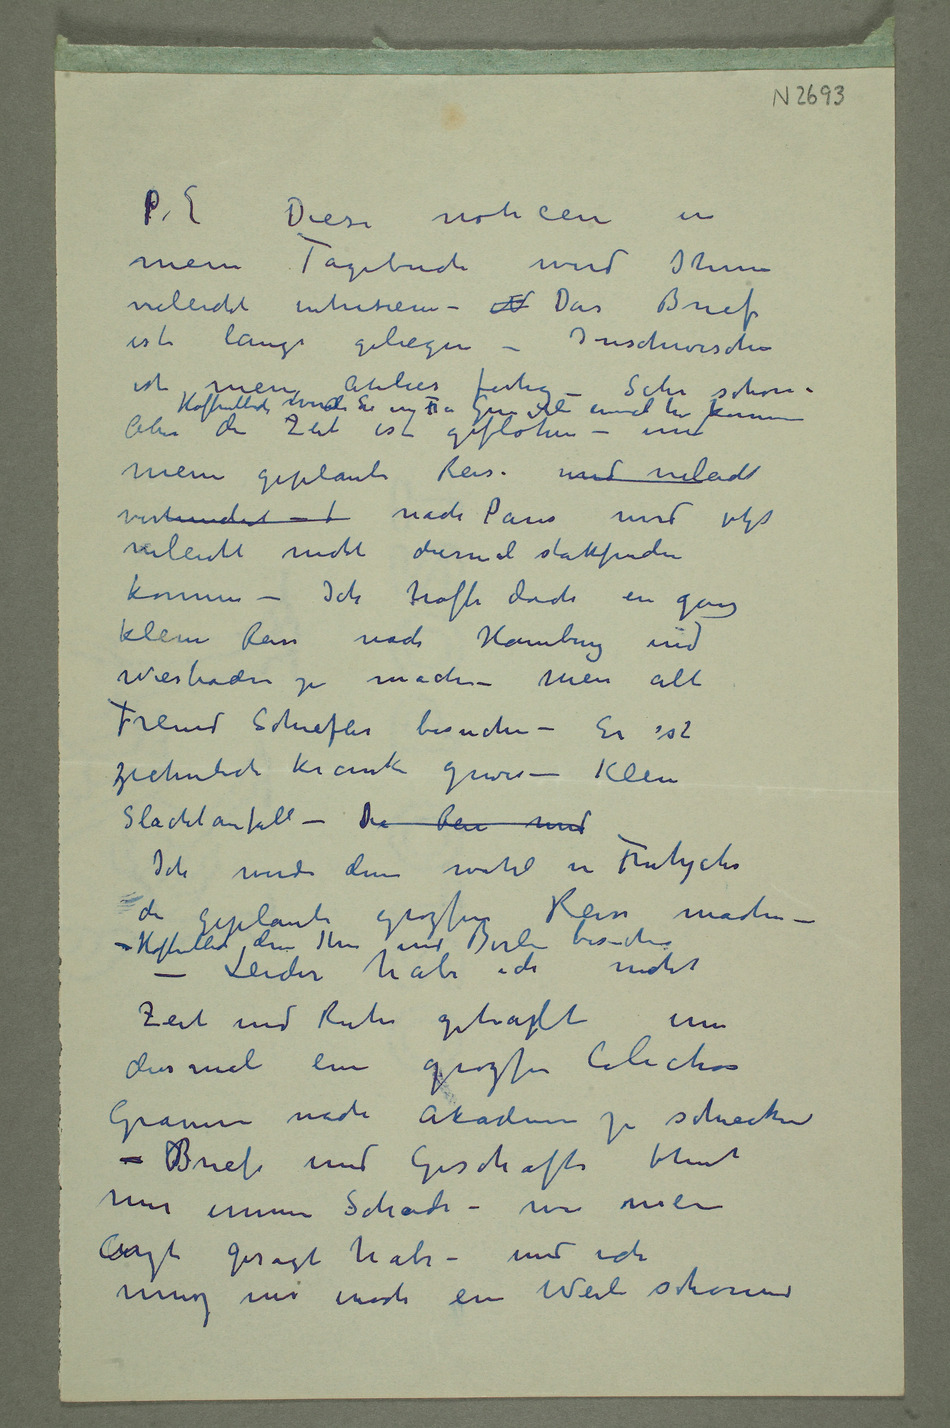 N 2693
P.S Diese noticen in
mein Tagebuch wird Ihnen
vieleicht intresiren – Das Brief
ist lange geliegen – Inschwischen
ist mein Atelier fertig – Sehr schön.
Hoffentlich werde Sie einmal kommen
Aber die Zeit ist geflohen – und
mein geplante Reise und vileicht
verhindert – nach Paris wird jetzt
vileicht nicht diesmal stattfinden
können – Ich hoffe doch en ganz
kleine Reise nach Hamburg und
Wiesbaden zu machen – mein alte
Freund Schiefler besuchen – Er ist
ziehmlich krank gewesen – Klein
Slachtanfall – Die Reise und
Ich werde denn wohl in Frühjahr
die geplante grozse Reise machen –
– Hoffentlich denn Ihnen und Berlin besuchen
– Leider habe ich nicht
Zeit und Ruhe gehabt um
diesmal ein grozse Colection
Graviur nach Akademie zu schicken
– Briefe und Geschäfte thut
mir immer Schade – wie mein
Arzt gesagt habe – und ich
muss mir noch ein Weile schonen